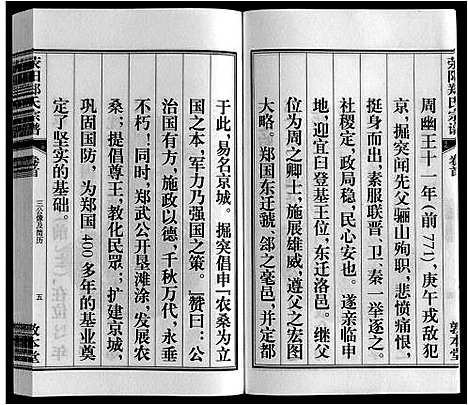 荥阳郑氏宗谱
卷首
周幽王十一年(前771),庚午戎敌犯
京,掘突闻先父骊山殉职,悲愤痛恨,
挺身而出,素服联晋、卫、秦一举逐之。
社稷定,政局稳,民心安也。遂亲临申
地,迎宜臼登基王位,东迁洛邑。继父
位为周之卿士,施展雄威,遵父之宏图
大略。郑国东迁虢、郐之毫邑,并定都
敦本堂
于此,易名京城。掘突倡申“农桑为立
国之本,军力乃强国之策。”赞曰:公
治国有方,施政以德,千秋万代,永垂
不朽!同时,郑武公开垦滩涂,发展农
桑;提倡尊王,教化民众;扩建京城,
巩固国防,为郑国400多年的基业奠
定了坚实的基础。
荥阳郑氏宗谱
卷首
三公像及简历
五
敦本堂